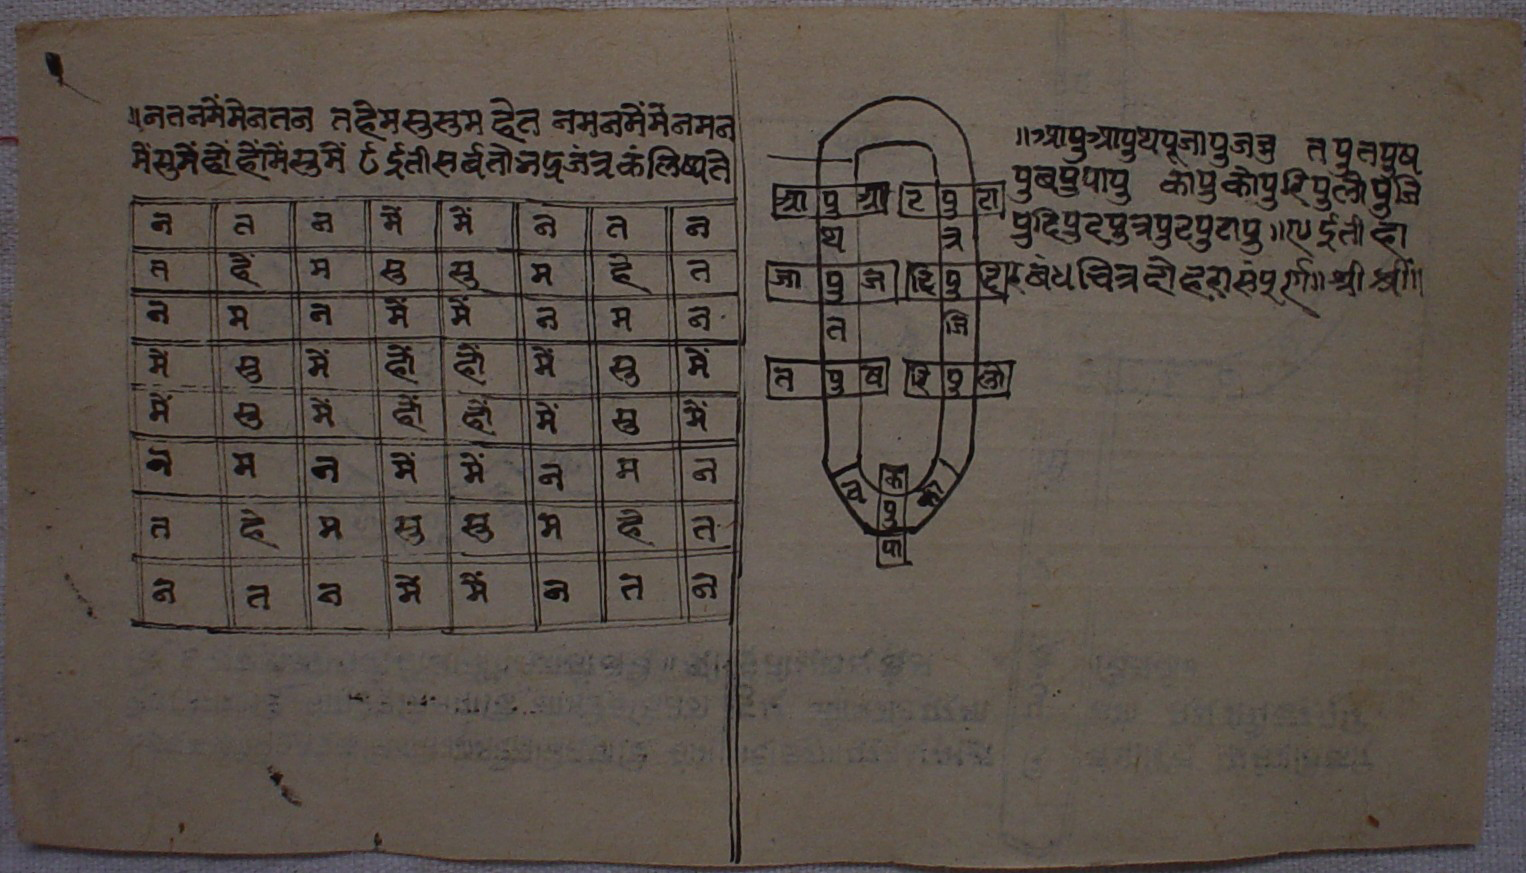 ॥नतनमेंमेनतन तहेमसुसुमहेत नमनमेंमेंनमन
मेंसुमेंहोंहोंमेंसुमें ८ ईतीसर्बतोभद्रजंत्रकंलिष्यते
न त न में में न त न
त हे म सु सु म हे त
न म न में में न म न
में सु में हों हों में सु में
में सु में हों हों में सु में
न म न में में न म न
त हे म सु सु म हे त
न त न में में न त न
आ पु आ ट पु टा
थ त्र
जा पु ज दि पु
त जि
त पु ष रि पु
क
पु
॥आपुआपुथपूजापुजजु तपुतपुष
पुबपुपापु कापुकोपुरिपुलोपुजि
पुदिपुदपुत्रपुटपुटापु॥ ईतीहा
रबंधचित्रदोहरासंपूर्ण॥श्री श्री॥